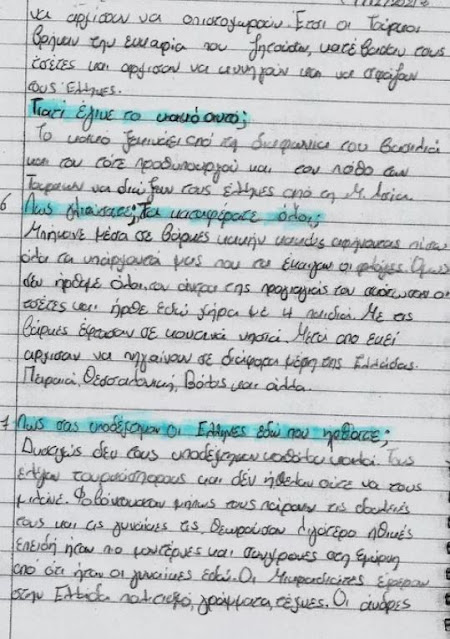 να αρχισουν να οπισθοχωρούν. Ετσι οι Τούρκοι
βρήκαν την ευκαιρία που ζητούσαν, κατέβασαν τους
τσέτες και αρχισαν να κυνηγούν και να σφάζουν
τους Έλληνες.
Γιατί έγινε το κακό αυτό;
Το κακό ξεκινάει από τη διαφωνία του βασιλιά
και του τότε πρωθυπουργού και τον πόθο των
Τούρκων να διώξουν τους έλληνες από τη Μ. Ασία.
6 Πως γλιτώσατε; Τα καταφέρατε όλοι;
Μπήκανε μέσα σε βάρκες κακήν κακώς αφήνοντας πίσω
όλα τα υπάρχοντά μας που τα έκαιγαν οι φλόγες. Όμως
δεν ήρθαμε όλοι, τον άντρα της προγιαγιάς τον σκότωσαν οι
τσέτες και ήρθε εδώ χήρα με 4 παιδιά. Με τις
βάρκες έφτασαν σε κοντινά νησιά. Μετά απο εκεί
αρχισαν να πηγαίνουν σε διάφορα μέρη της Ελλάδας.
Πειραιά, Θεσσαλονίκη, Βόλος και άλλα.
7 Πως σας υποδέχτηκαν οι Ελληνες εδώ που ηρθατε;
Δυστυχώς δεν τους υποδέχτηκαν καθόλου καλά. Τους
έλεγαν τουρκόσπορους και δέν ήθελαν ούτε να τους
μιλάνε. Φοβόντουσαν μήπως τους πάρουν τις δουλειές
τους και τις γυναίκες τις θεωρούσαν λιγότερο ηθικές
επειδή ήταν πιο μοντέρνες και σύγχρονες στη Σμύρνη
από ότι ήταν οι γυναίκες εδώ. Οι Μικρασιάτες έφεραν
στην Ελλάδα πολιτισμό, γράμματα, τέχνες. Οι άνδρες